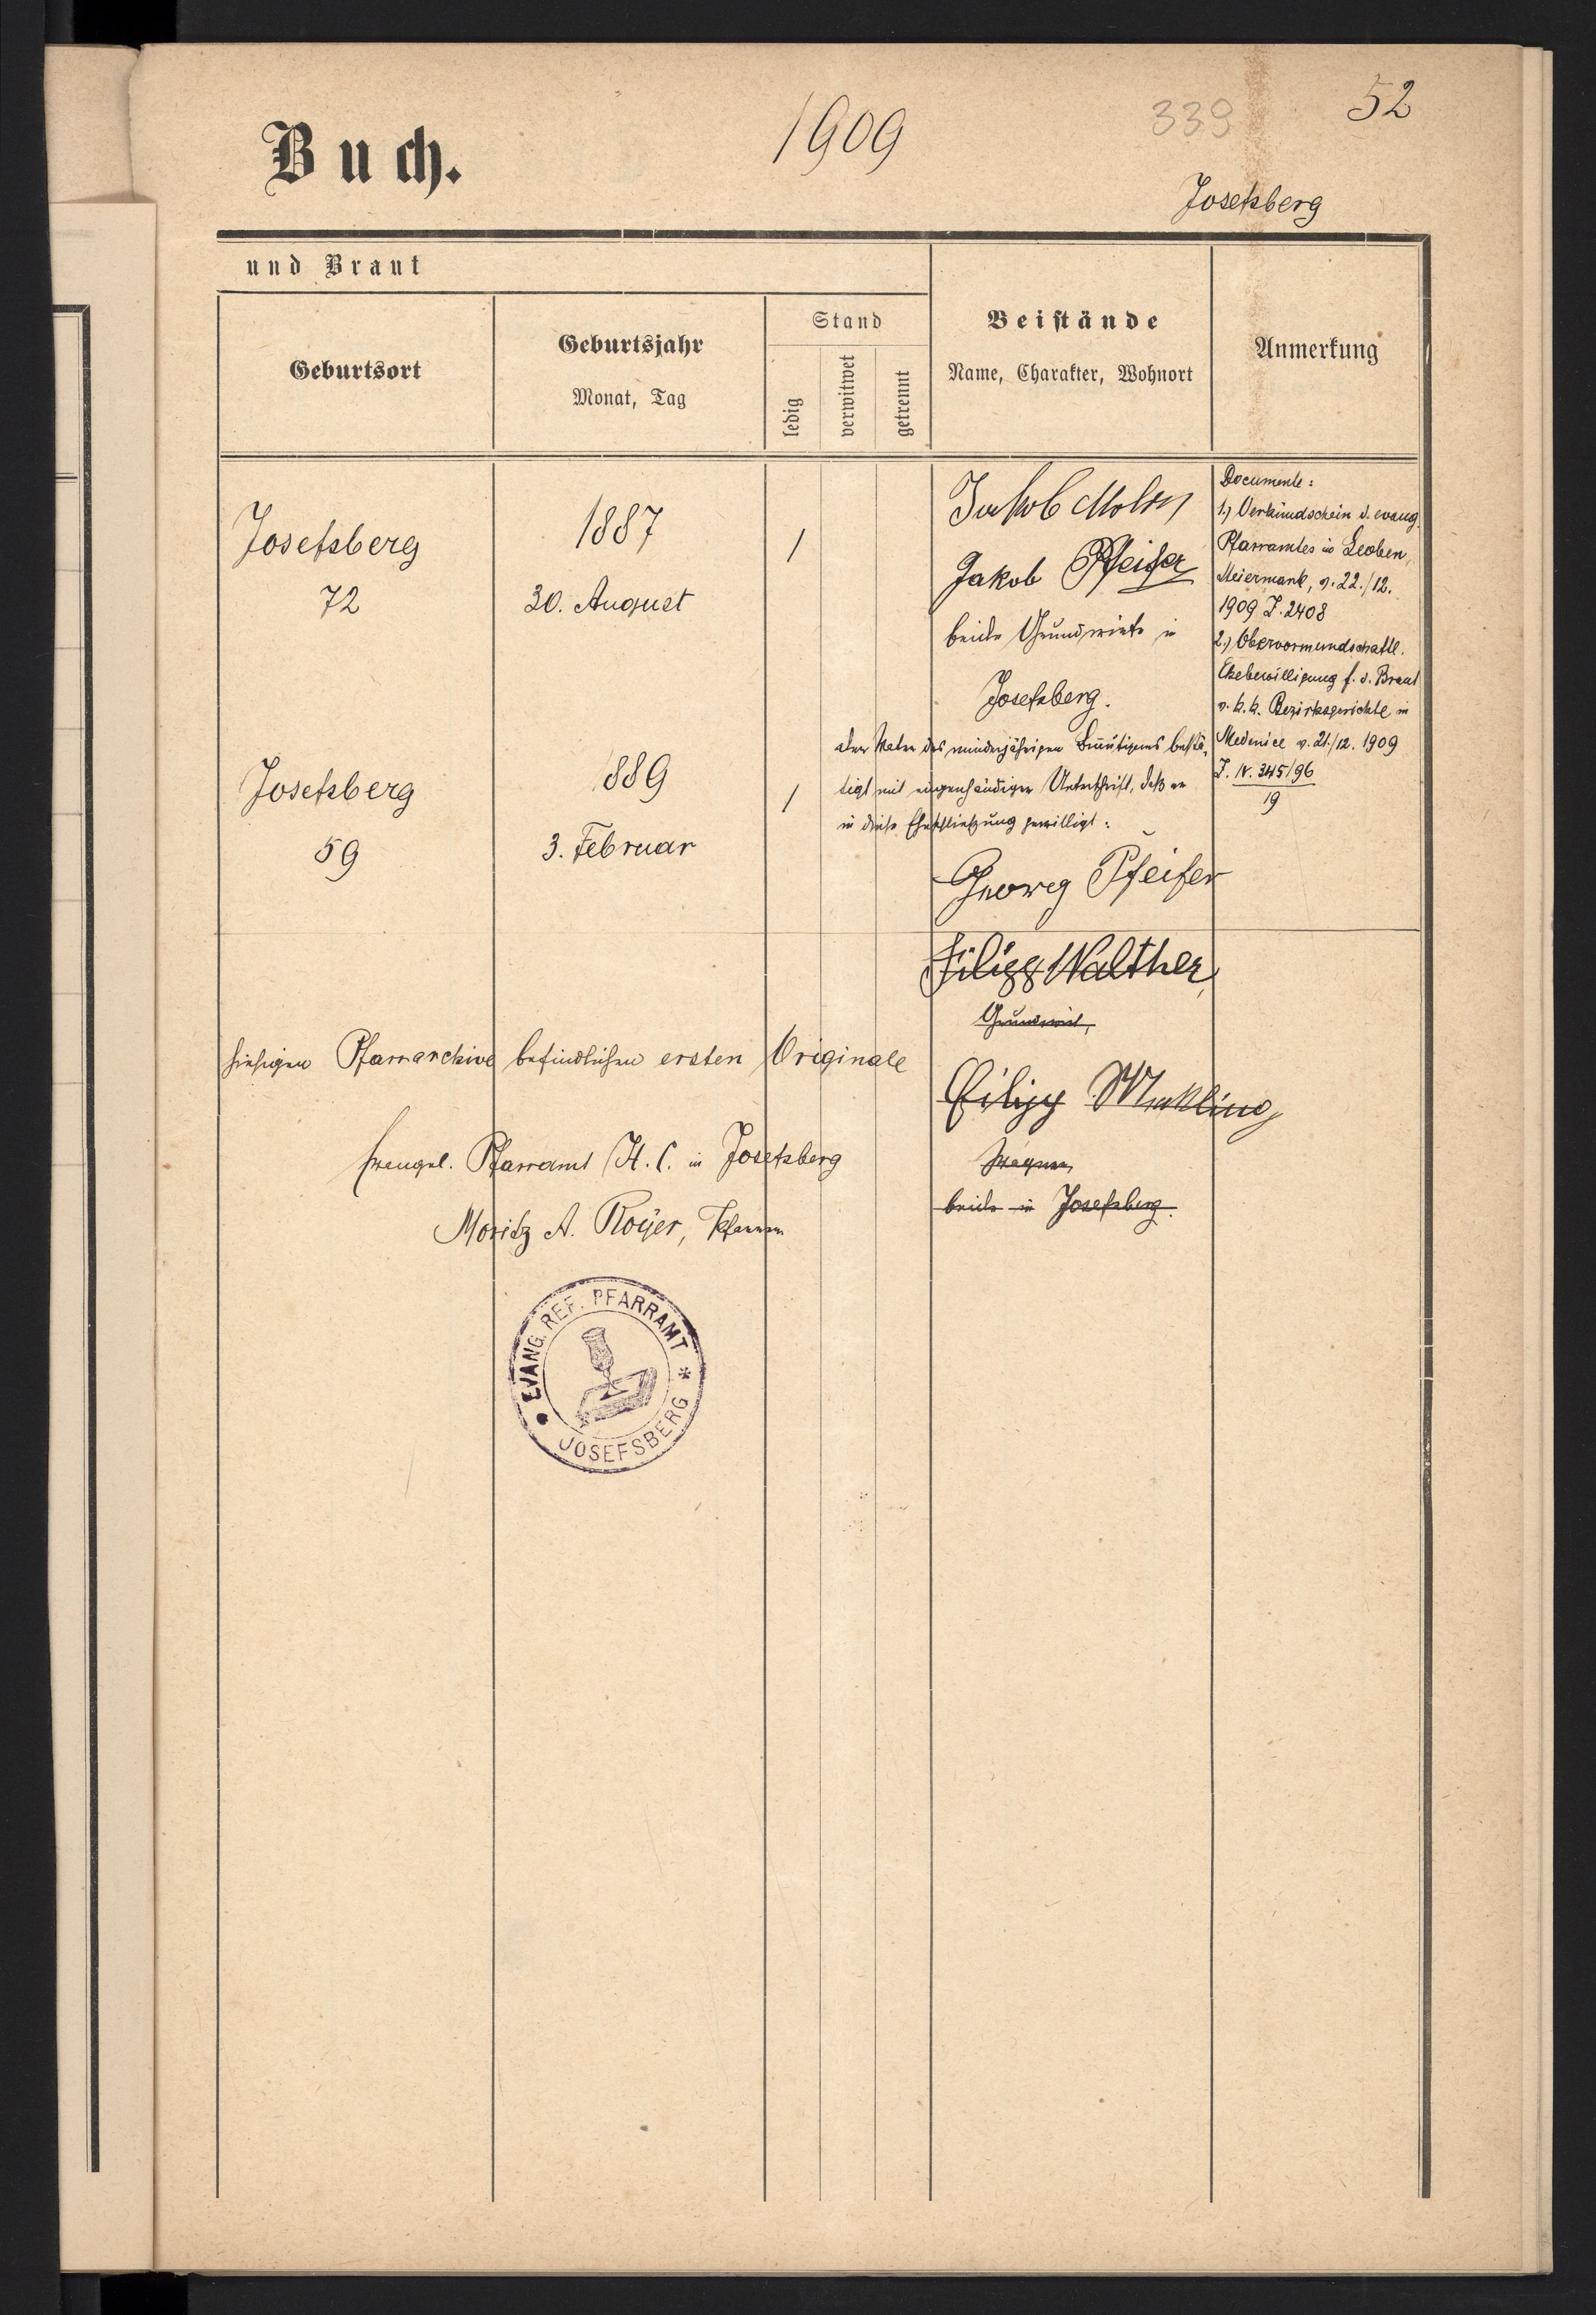 Buch.
1909
339
52
Josefsberg
und Braut
Geburtsort
Geburtsjahr
Monat, Tag
Stand
ledig
verwitwet
getrennt
Beistände
Name, Charakter, Wohnort
Anmerkung
Josefsberg
72
1887
30. August
1
Jakob
Jakob Pfeifer
beide Grundwirte in
Josefsberg.
Documente:
1.) Verkündschein d. evang.
Pfarramtes in Leoben,
v. 22./12.
1909 Z. 2408
2.) Obervormundschaftl.
Ehebewilligung f. d. Braut
v. k. k. Bezirksgerichte in
Medenice v. 21./12. 1909
Z. IV. 345/96
19
Josefsberg
59
1889
3. Februar
1
Der Vater des minderjährigen Bräutigams bestä-
tigt mit eigenhändiger Unterschrift, daß er
in diese Eheschließung gewilligt:
Georg Pfeifer
Filipp Walther,
Grundwirt,
Filipp
Wagner,
beide in Josefsberg.
hiesigen Pfarrarchive befindlichen ersten Originale
Evangel. Pfarramt H. C. in Josefsberg
Moritz A. Royer, Pfarrer
EVANG. REF. PFARRAMT *
JOSEFSBERG